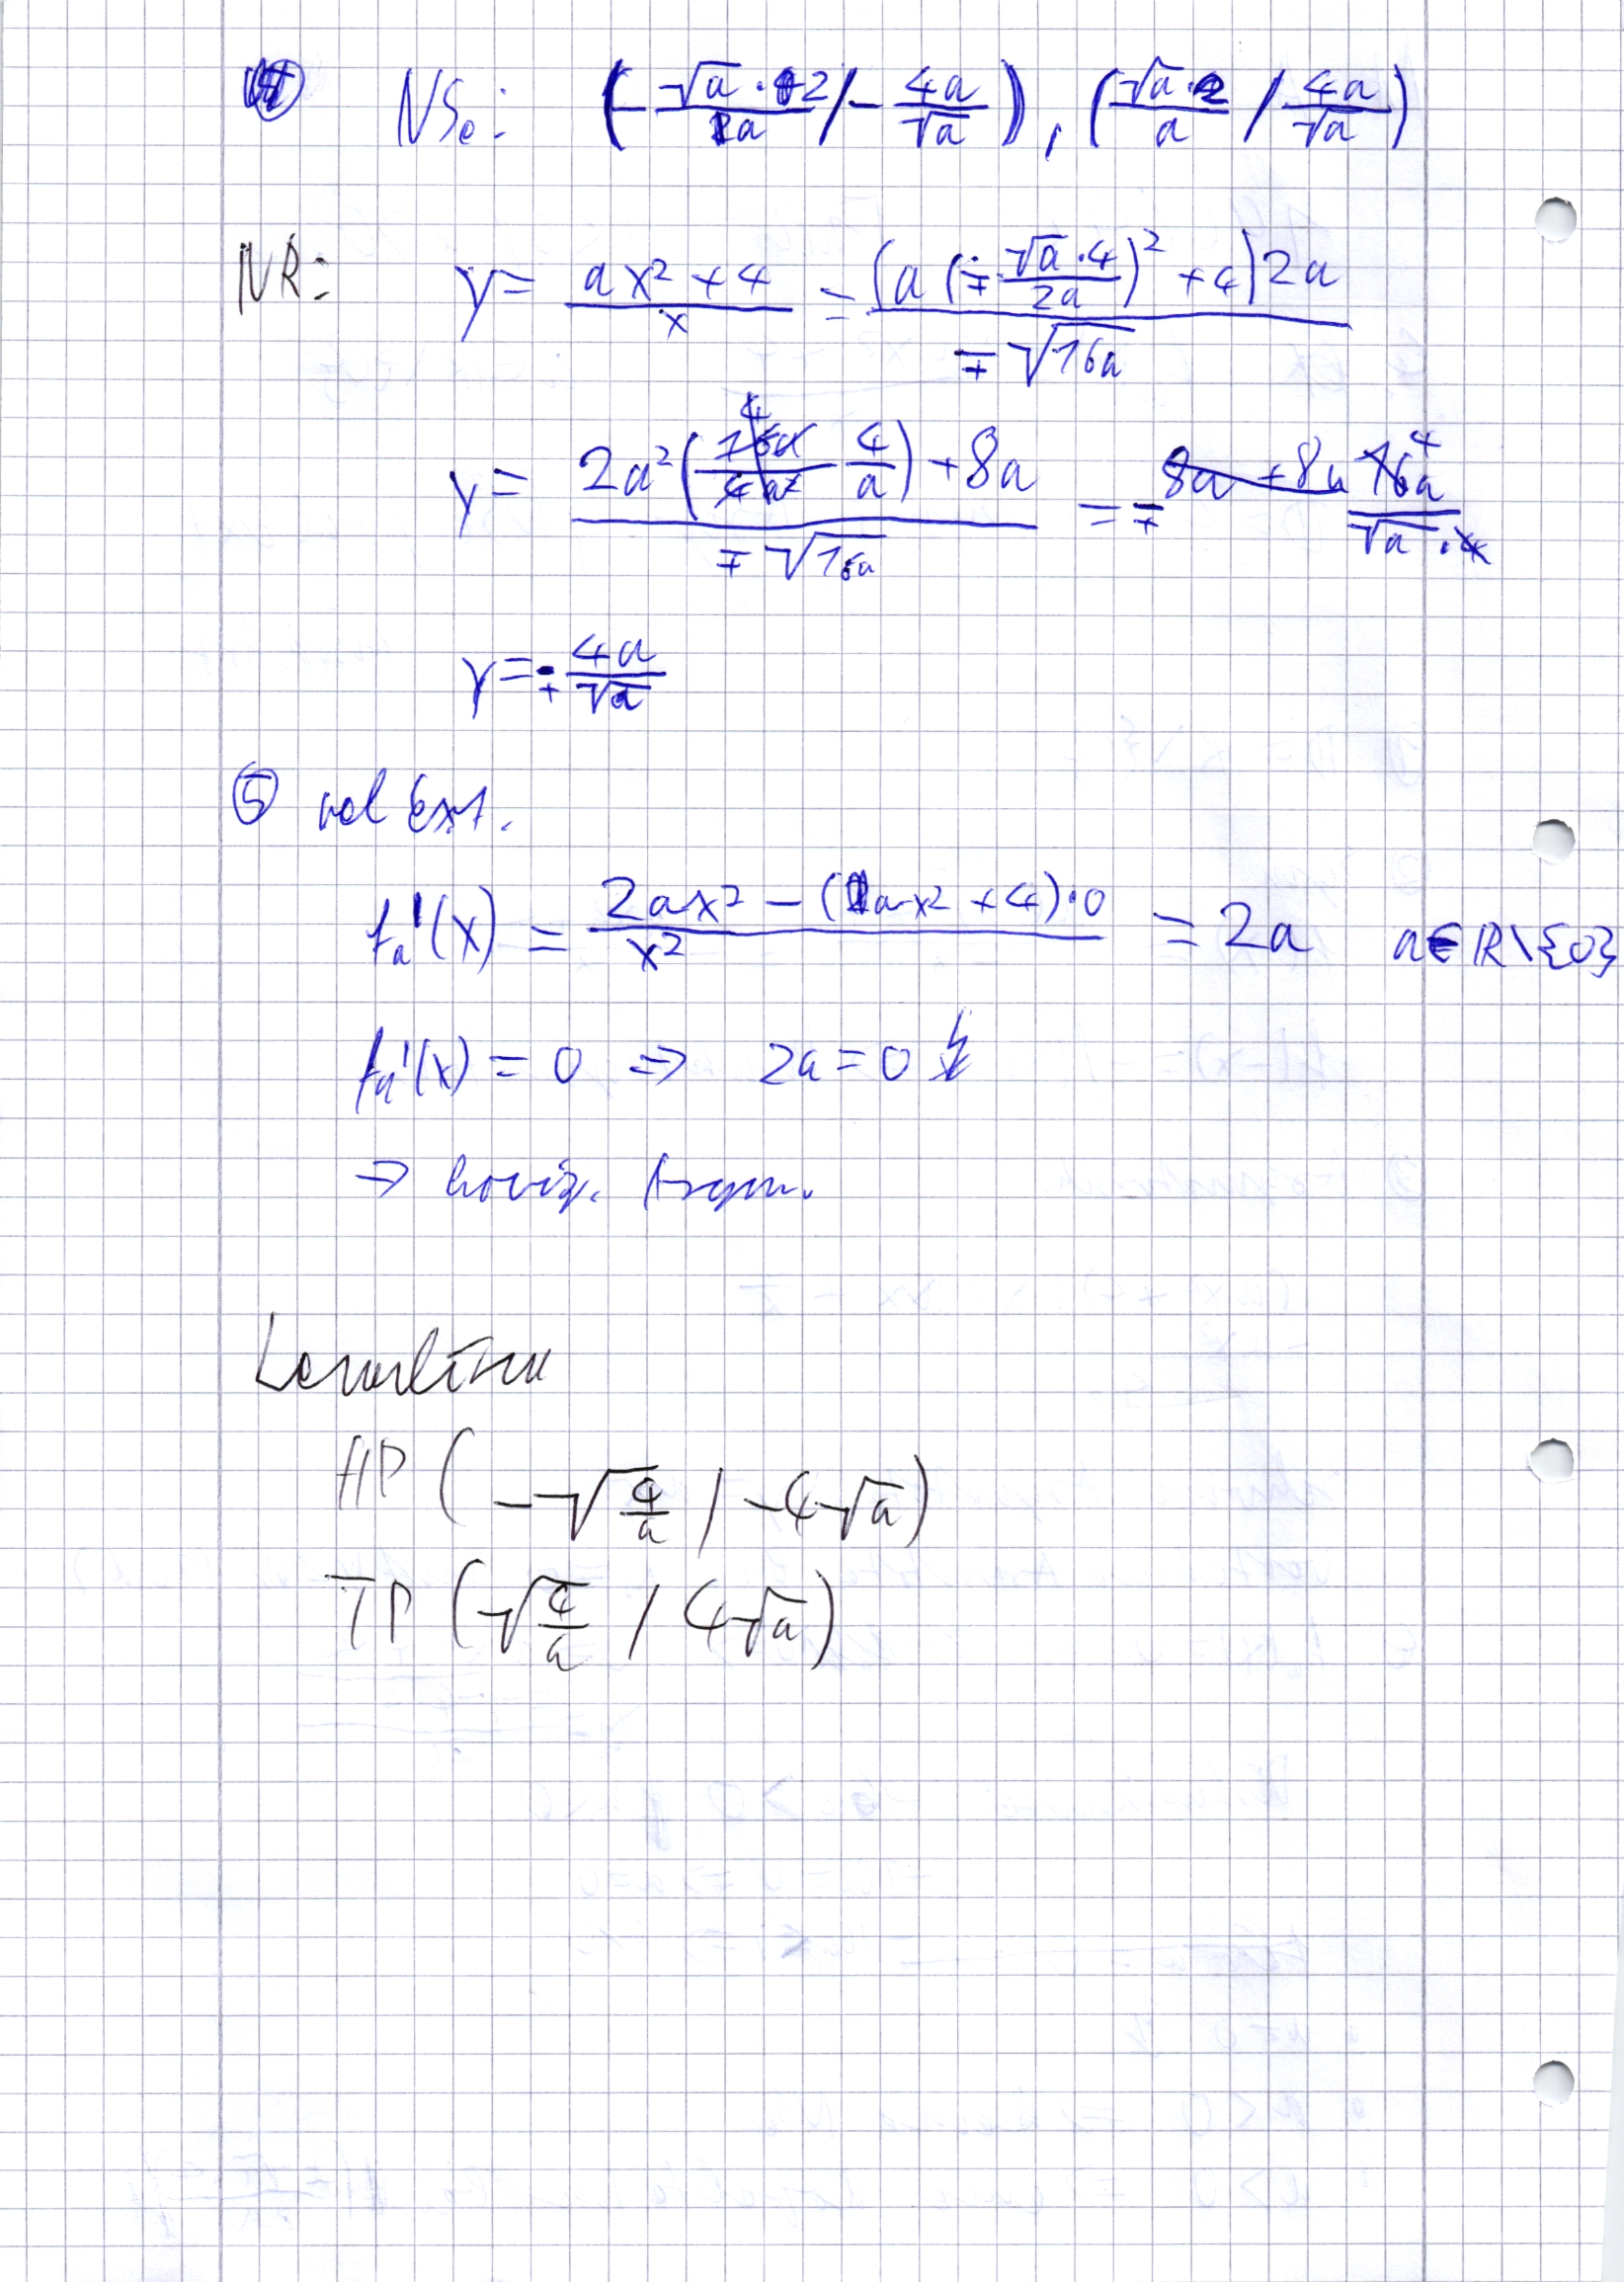 ④ NSe: (-√a·2/2a / -4a/√a), (√a·2/a / 4a/√a)
NR: y = (ax²+4)/x = (a(∓√a·4/2a)²+4)2a / ∓√16a
y = (2a²(16a/4a² 4/a)+8a) / ∓√16a = ∓ 8a+8a 16a/√a·4
y = ∓ 4a/√a
⑤ rel Ext.
fa'(x) = (2ax² - (1ax²+4)·0)/x² = 2a a∈ℝ\{0}
fa'(x) = 0 ⇒ 2a = 0 ↯
⇒ horiz. Asym.
HP (-√4/a / -4√a)
TP (√4/a / 4√a)